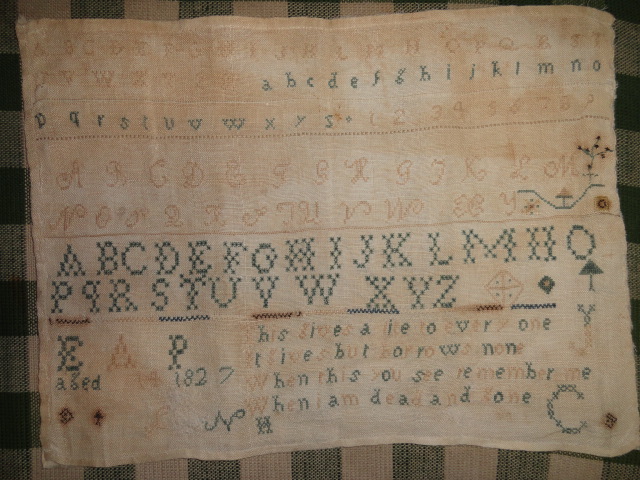 A B C D E F G H I J K L M N O P Q R S T
U V W X Y Z a b c d e f g h i j k l m n o
p q r s t u v w x y z 1 2 3 4 5 6 7 8 9
A B C D E F G H I J K L M
N O P Q R S T U V W X Y Z
A B C D E F G H I J K L M N O
P Q R S T U V W X Y Z
E A P
aged 14 1827
This gives a lie to every one
t gives but borrows none
When this you see remember me
When i am dead and gone